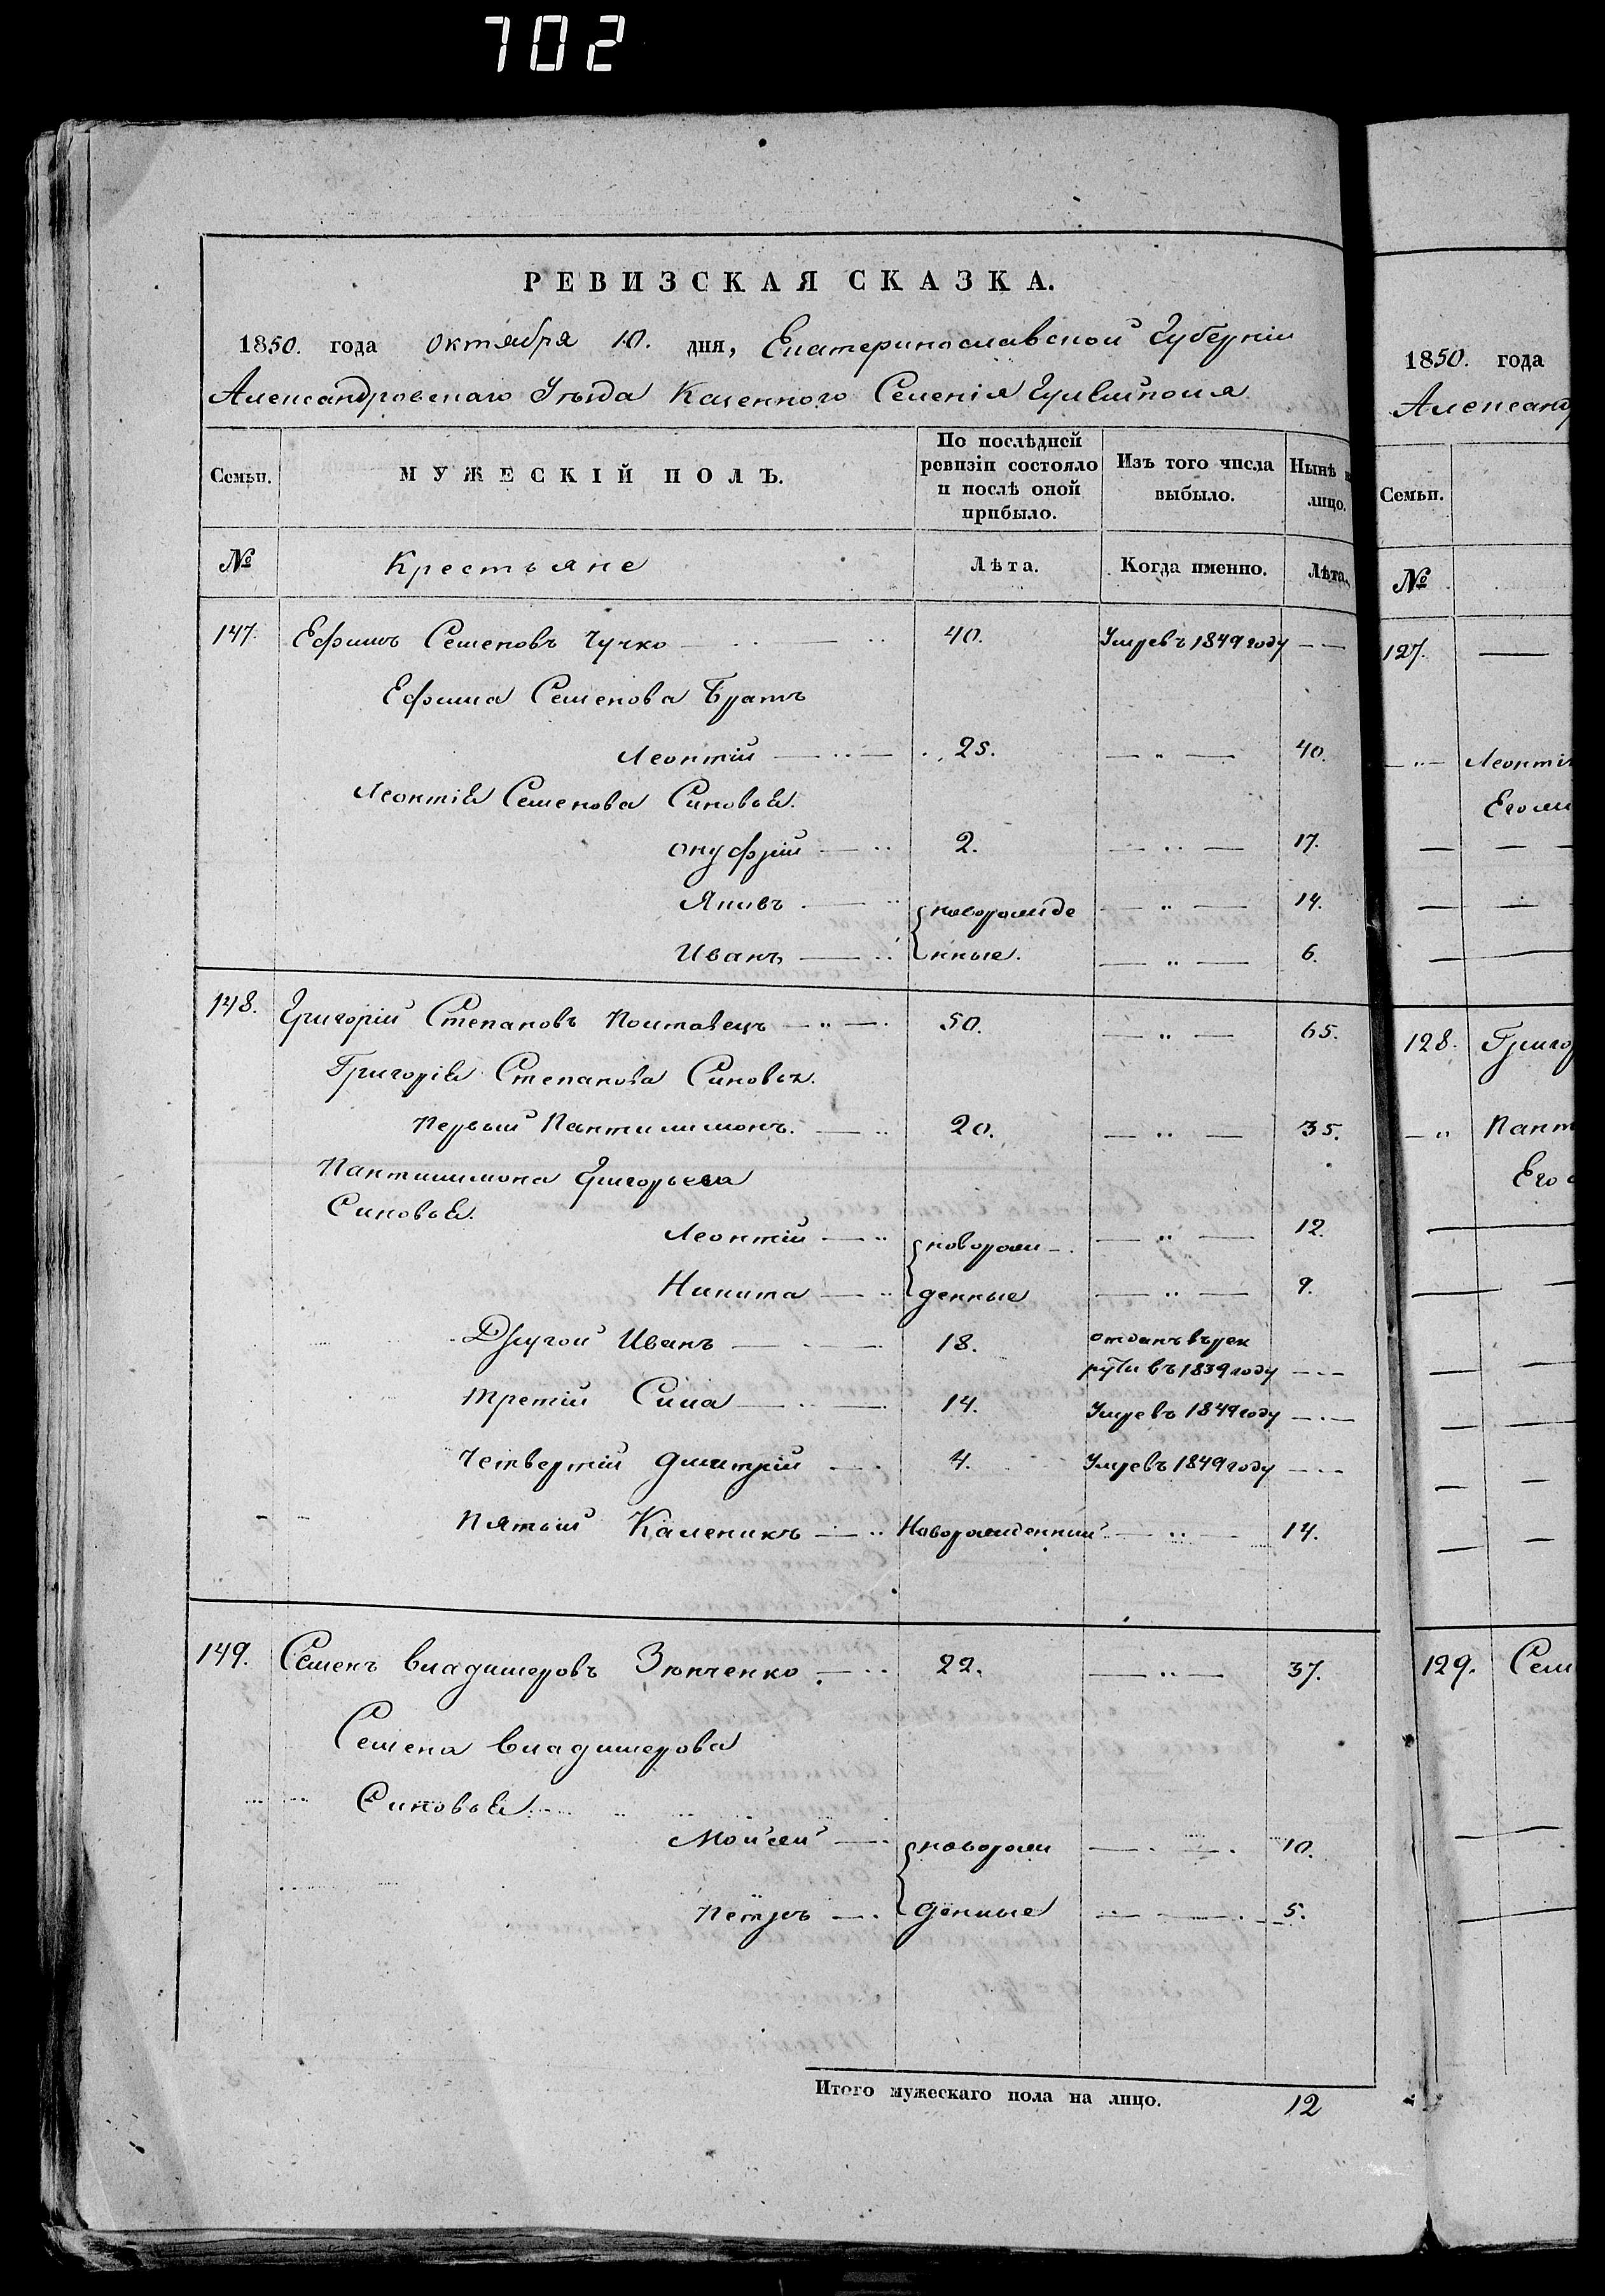 702
РЕВИЗСКАЯ СКАЗКА.
1850. года октября 10. дня, Екатеринославской Губерніи
Александровскаго Уѣзда Казенного Селенія Гуляйполя
Семьи. МУЖЕСКІЙ ПОЛЪ. По послѣдней ревизіи состояло и послѣ оной прибыло. Изъ того числа выбыло. Нынѣ н лицо.
№ Крестьяне Лѣта. Когда именно. Лѣта.
147. Ефимъ Семеновъ Чучко 40. Умре въ 1849 году
Ефима Семенова Братъ
Леонтій 25. 40.
Леонтія Семенова Синовья.
Онуфрій 2. 17.
Яковъ новорожде 14.
Иванъ нные. 6.
148. Григорій Степановъ Полтавецъ 50. 65.
Григорія Степанова Синовья.
Первый Пантилимонъ. 20. 35.
Пантилимона Григорьева
Синовья.
Леонтій новорож- 12.
Никита денные 9.
Другой Иванъ 18. отданъ въ рек
руты въ 1839 году
Третій Сила 14. Умре въ 1849 году
Четвертій Дмитрій 4. Умре въ 1849 году
Пятый Каленикъ Новорожденний 14.
149. Семенъ Владимеровъ Зюпченко 22. 37.
Семена Владимерова
Синовья
Мойсей новорож 10.
Петръ денные 5.
Итого мужескаго пола на лицо. 12
1850. года
Александ
Семьи.
№
127.
Леонтія
Его
128. Григор
Пант
Его
129. Сем